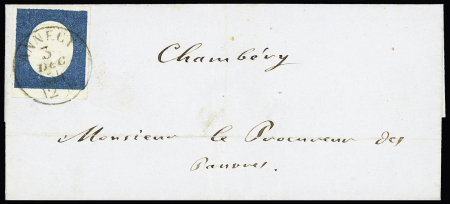 ANNECY
3
DEC
Chambéry
Monsieur le Procureur des
Pauvres.